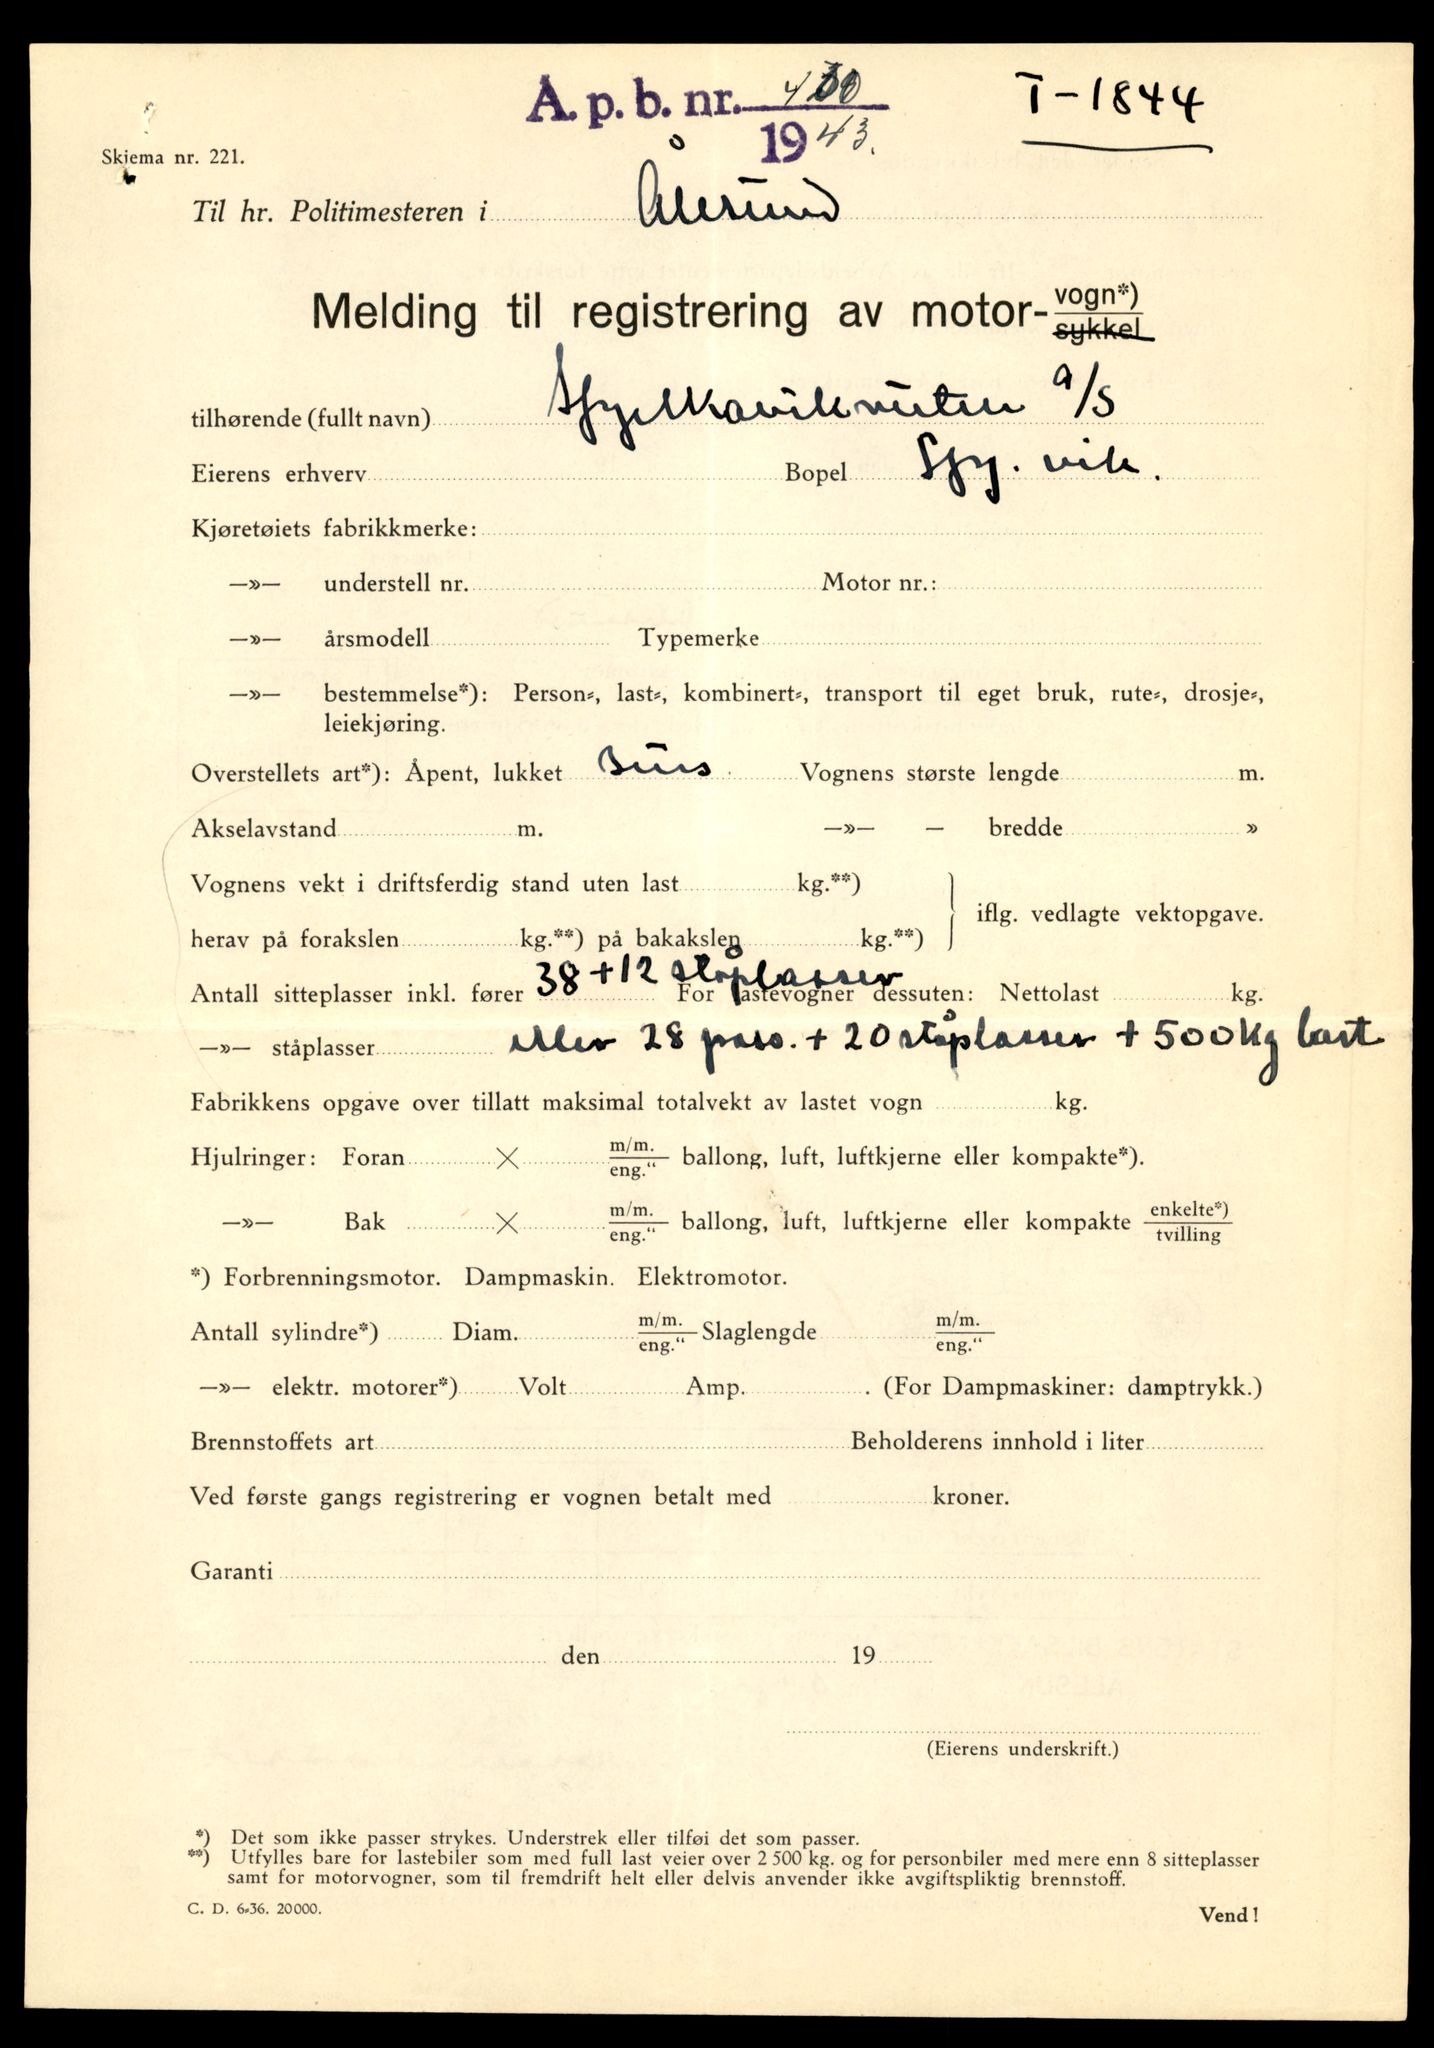 A. p. b. nr. 430
1943.
T-1844
Skjema nr. 221.
Til hr. Politimesteren i Ålesund
Melding til registrering av motor- vogn*)
sykkel
tilhørende (fullt navn) Spjelkavikruten A/S
Eierens erhverv Bopel Spj. vik.
Kjøretøiets fabrikkmerke:
—»— understell nr. Motor nr.:
—»— årsmodell Typemerke
—»— bestemmelse*): Person-, last-, kombinert-, transport til eget bruk, rute-, drosje-,
leiekjøring.
Overstellets art*): Åpent, lukket Buss Vognens største lengde m.
Akselavstand m. —»— — bredde »
Vognens vekt i driftsferdig stand uten last kg.**)
iflg. vedlagte vektopgave.
herav på forakslen kg.**) på bakakslen kg.**)
38 + 12 ståplasser
Antall sitteplasser inkl. fører For lastevogner dessuten: Nettolast kg.
—»— ståplasser eller 28 pass. + 20 ståplasser + 500 kg last
Fabrikkens opgave over tillatt maksimal totalvekt av lastet vogn kg.
Hjulringer: Foran × m/m. eng.“ ballong, luft, luftkjerne eller kompakte*).
—»— Bak × m/m. eng.“ ballong, luft, luftkjerne eller kompakte enkelte*) tvilling
*) Forbrenningsmotor. Dampmaskin. Elektromotor.
Antall sylindre*) Diam. m/m. eng.“ Slaglengde m/m. eng.“
—»— elektr. motorer*) Volt Amp. . (For Dampmaskiner: damptrykk.)
Brennstoffets art Beholderens innhold i liter
Ved første gangs registrering er vognen betalt med kroner.
Garanti
den 19
(Eierens underskrift.)
*) Det som ikke passer strykes. Understrek eller tilføi det som passer.
**) Utfylles bare for lastebiler som med full last veier over 2 500 kg. og for personbiler med mere enn 8 sitteplasser
samt for motorvogner, som til fremdrift helt eller delvis anvender ikke avgiftspliktig brennstoff.
C. D. 6-36. 20000.
Vend!